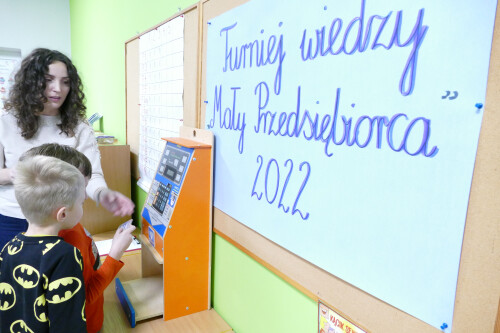 Turniej wiedzy
"Mały Przedsiębiorca"
2022